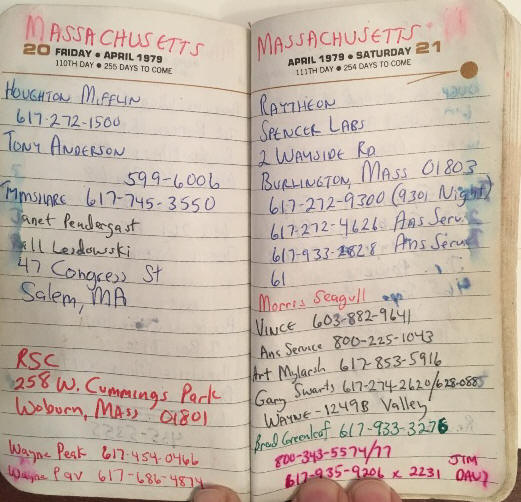 MASSACHUSETTS
20 FRIDAY • APRIL 1979
110TH DAY • 255 DAYS TO COME
HOUGHTON MIFFLIN
617-272-1500
TONY ANDERSON
599-6006
617-745-3550
Janet Pendergast
Bill Lesdowski
47 Congress St
Salem, MA
RSC
258 W. Cummings Park
Woburn, MASS 01801
Wayne Peak 617-454-0466
Wayne Pav 617-686-4874
MASSACHUSETTS
APRIL 1979 • SATURDAY 21
111TH DAY • 254 DAYS TO COME
RAYTHEON
SPENCER LABS
2 WAYSIDE RD
BURLINGTON, MASS 01803
617-272-9300 (9301 Night)
617-272-4626 Ans Serv.
617-933-2828 Ans Serv
61
Morris Seagull
VINCE 603-882-9641
Ans Service 800-225-1043
Art Mylarsh 617-853-5916
Gary Swarts 617-274-2620/628-0885
WAYNE - 1249B Valley
Brad Greenleaf 617-933-3276
800-343-5574/77
617-935-9206 x 2231
JIM